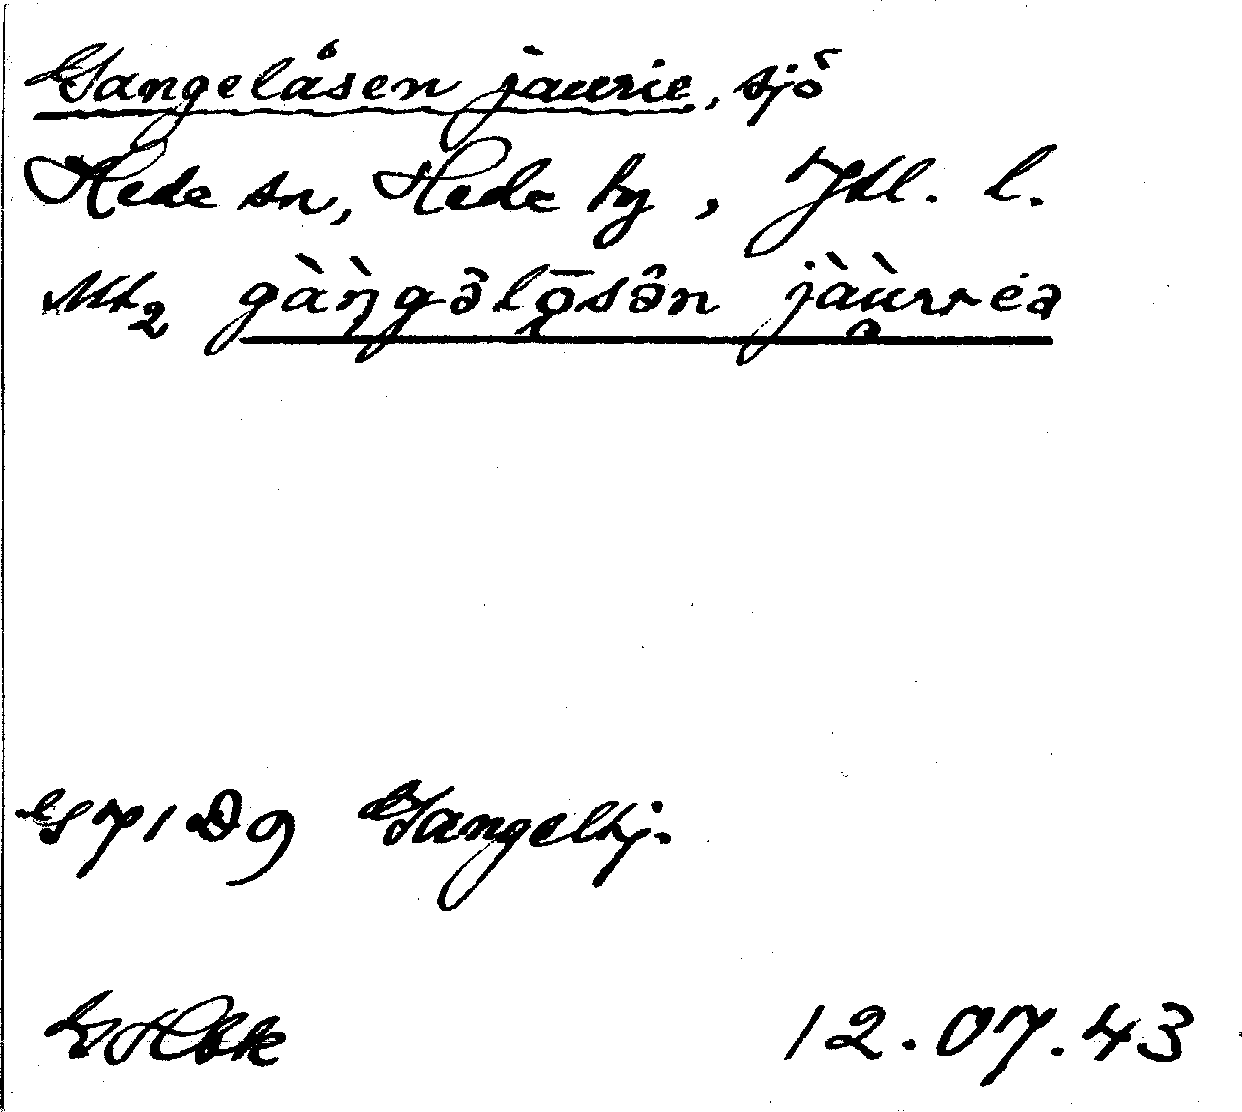 Gangelåsen jaurie, sjö
Hede sn, Hede by, Jtl. l.
gàŋ̀gə̂lō̜sə̂n jàù̯rrėə
G 71 D 9 Gangeltj.
12.07.43